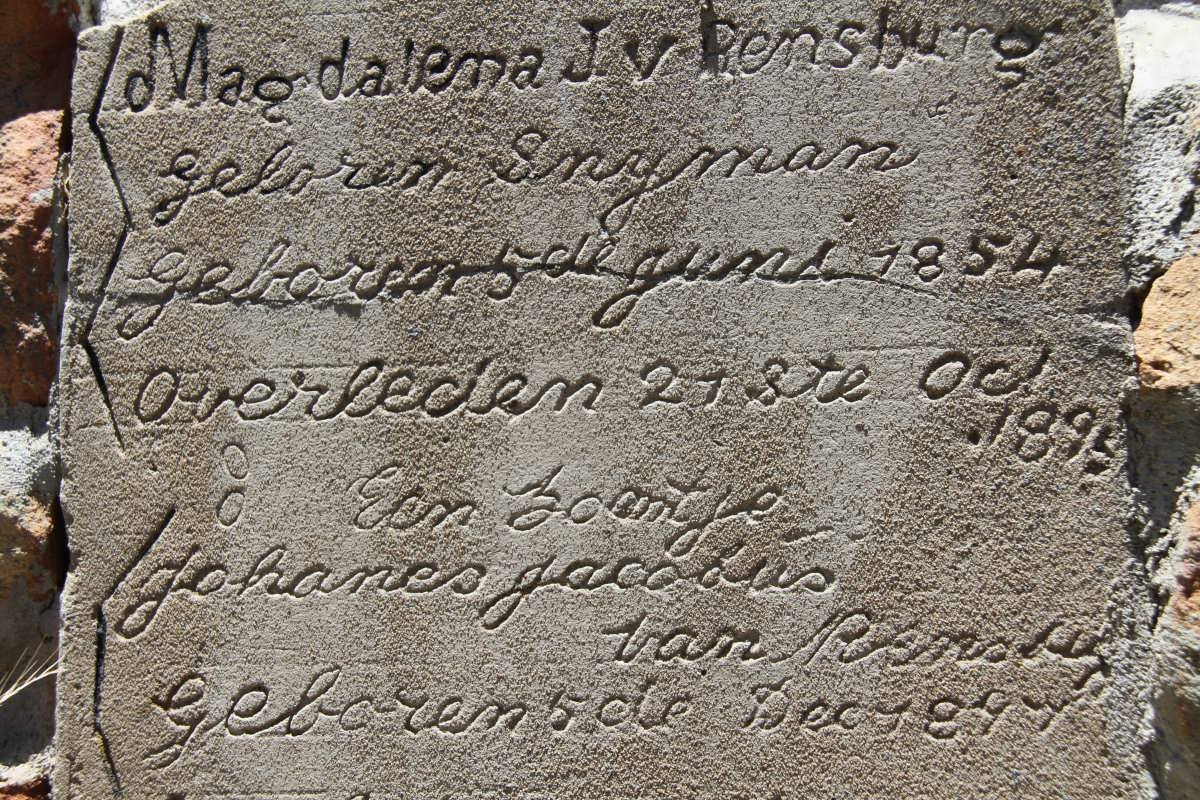 Magdalena J v Rensburg
geboren Snyman
Geboren 5 de juni 1854
Overleden 21 ste Oc
189
Een Zoontje
johanes jacobus
van Rensbu
Geboren 5 de Dec 189